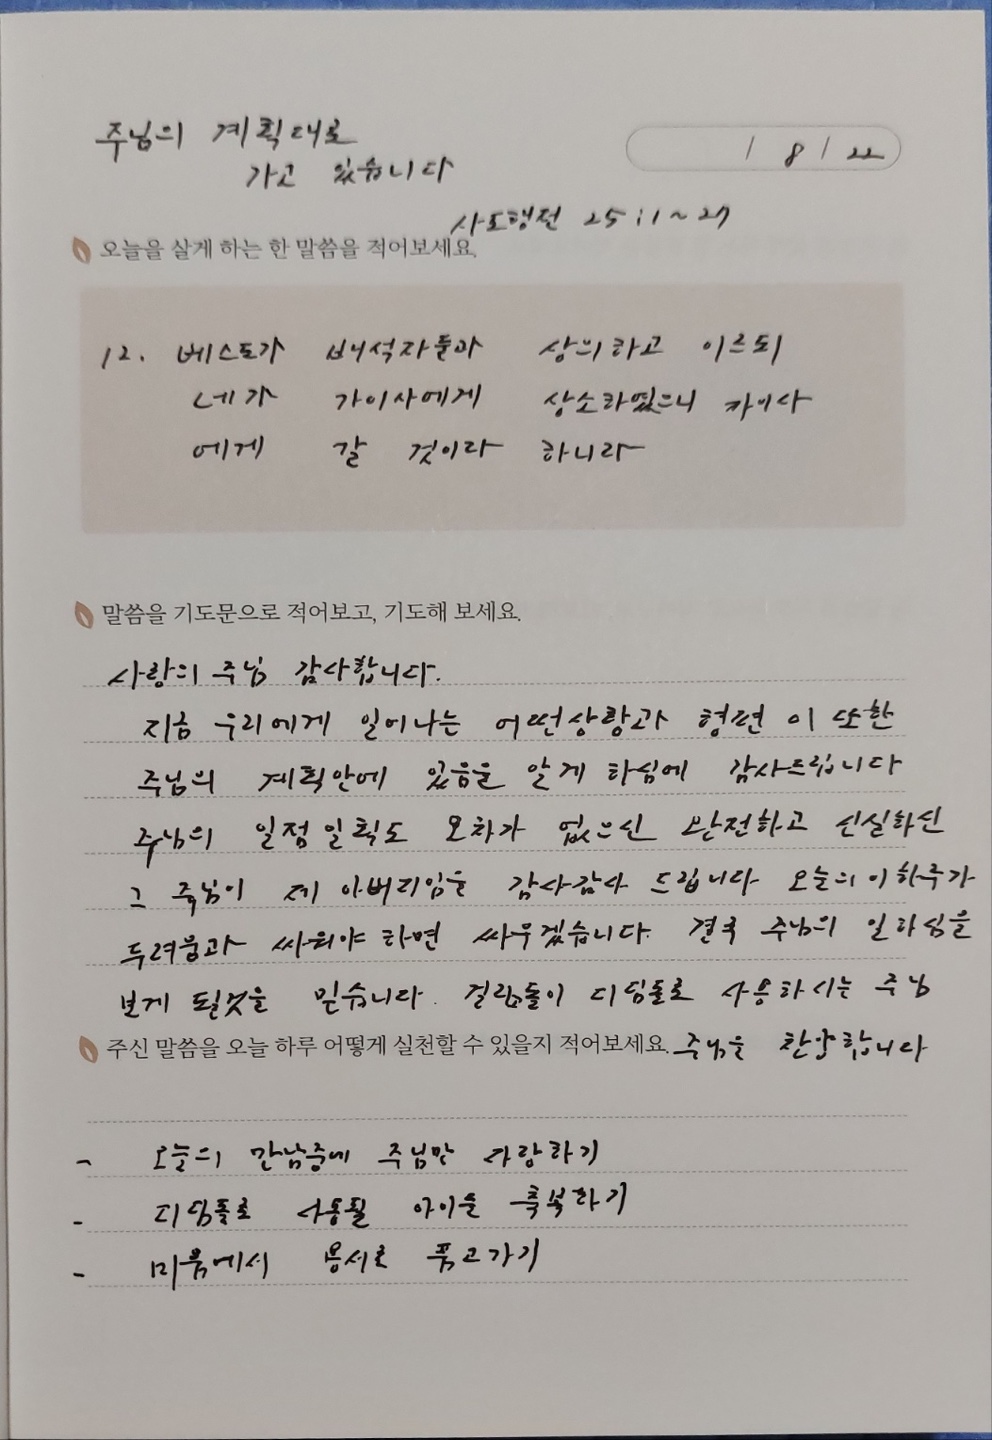 주님의 계획대로
가고 있습니다
/ 8 / 22
사도행전 25:1~27
오늘을 살게 하는 한 말씀을 적어보세요.
12. 베스도가 배석자들과 상의하고 이르되
네가 가이사에게 상소하였으니 가이사
에게 갈 것이라 하니라
말씀을 기도문으로 적어보고, 기도해 보세요.
사랑의 주님 감사합니다.
지금 우리에게 일어나는 어떤상황과 형편 이 또한
주님의 계획안에 있음을 알게 하심에 감사드립니다
주님의 일점일획도 오차가 없으신 완전하고 신실하신
그 주님이 제 아버지임을 감사감사 드립니다 오늘의 이 하루가
두려움과 싸워야 하면 싸우겠습니다. 결국 주님의 일하심을
보게 될것을 믿습니다. 걸림돌이 디딤돌로 사용하시는 주님
주신 말씀을 오늘 하루 어떻게 실천할 수 있을지 적어보세요. 주님을 찬양합니다
- 오늘의 만남중에 주님만 자랑하기
- 디딤돌로 사용될 아이을 축복하기
- 미움에서 용서로 품고가기